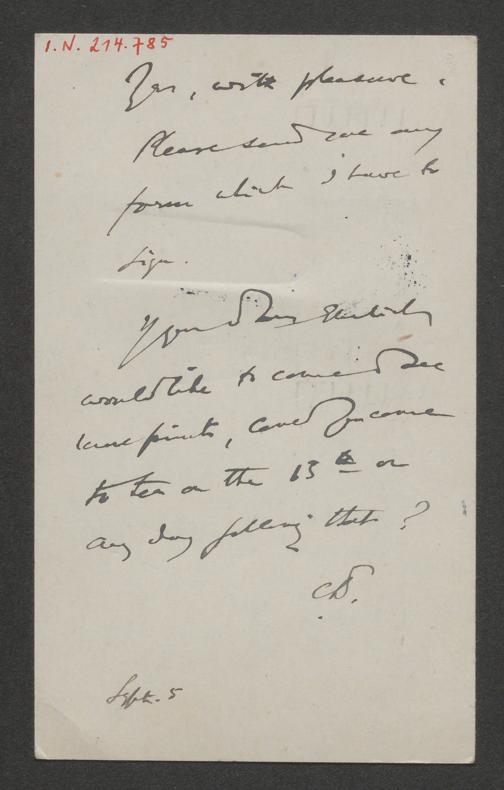 I.N. 214.785
Yes, with pleasure.
Please send me any
form which I have to
sign.
If you &
would like to come & see
some prints, could you come
to tea on the 13th or
any day following that?
CD.
Sept. 5